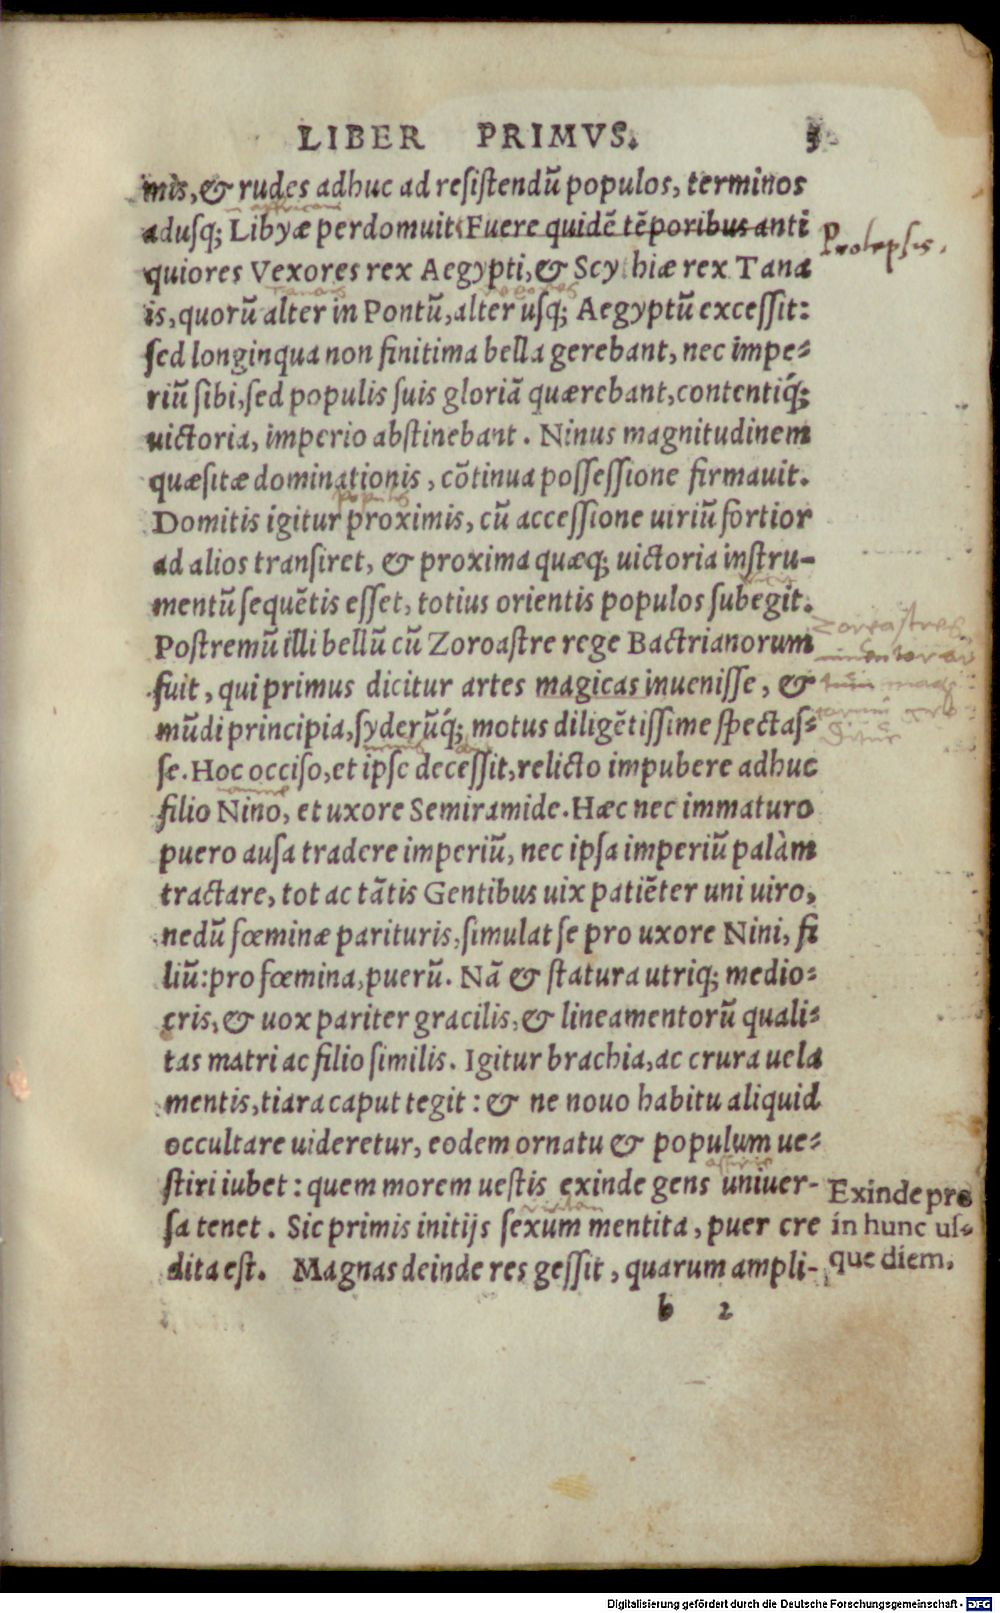 LIBER PRIMVS. 3
mis, & rudes adhuc ad resistendū populos, terminos
adusq; Libyæ perdomuit. Fuere quidē tēporibus anti
Prolepsis.
quiores Vexores rex Aegypti, & Scythiæ rex Tana
is, quorū alter in Pontū, alter usq; Aegyptū excessit:
sed longinqua non finitima bella gerebant, nec impe-
riū sibi, sed populis suis gloriā quærebant, contentiq́;
uictoria, imperio abstinebant. Ninus magnitudinem
quæsitæ dominationis, cōtinua possessione firmauit.
Domitis igitur proximis, cū accessione uiriū fortior
ad alios transiret, & proxima quæq; uictoria instru-
mentū sequētis esset, totius orientis populos subegit.
Postremū illi bellū cū Zoroastre rege Bactrianorum
fuit, qui primus dicitur artes magicas inuenisse, &
mūdi principia, syderūq́; motus diligētissime spectas-
se. Hoc occiso, et ipse decessit, relicto impubere adhuc
filio Nino, et uxore Semiramide. Hæc nec immaturo
puero ausa tradere imperiū, nec ipsa imperiū palàm
tractare, tot ac tātis Gentibus uix patiēter uni uiro,
nedū fœminæ parituris, simulat se pro uxore Nini, fi
liū: pro fœmina, puerū. Nā & statura utriq; medio-
cris, & uox pariter gracilis, & lineamentorū quali-
tas matri ac filio similis. Igitur brachia, ac crura uela
mentis, tiara caput tegit: & ne nouo habitu aliquid
occultare uideretur, eodem ornatu & populum ue-
stiri iubet: quem morem uestis exinde gens uniuer-
sa tenet. Sic primis initijs sexum mentita, puer cre
dita est. Magnas deinde res gessit, quarum ampli-
Exinde pro
in hunc us-
que diem.
b 2
Digitalisierung gefördert durch die Deutsche Forschungsgemeinschaft - DFG